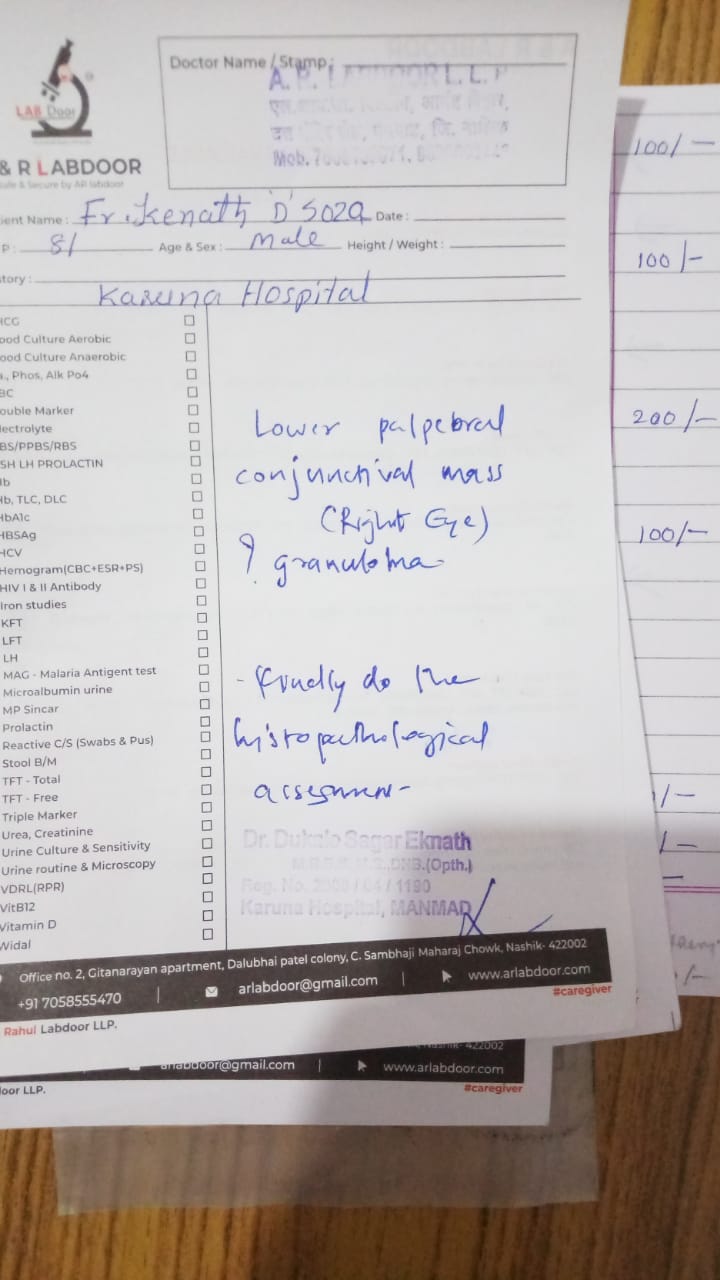 LAB Door
& R LABDOOR
Safe & Secure by AR labdoor
Doctor Name / Stamp:
A. R. LABDOOR L.L.P
Mob.
ient Name: Fr. Kenath 'D' Soza Date:
P: 81 Age & Sex: Male Height / Weight:
tory:
Karuna Hospital
HCG
ood Culture Aerobic
ood Culture Anaerobic
a., Phos, Alk Po4
BC
ouble Marker
lectrolyte
BS/PPBS/RBS
SH LH PROLACTIN
Hb
Hb, TLC, DLC
HbA1c
HBSAg
HCV
Hemogram(CBC+ESR+PS)
HIV I & II Antibody
Iron studies
KFT
LFT
LH
MAG - Malaria Antigent test
Microalbumin urine
MP Sincar
Prolactin
Reactive C/S (Swabs & Pus)
Stool B/M
TFT - Total
TFT - Free
Triple Marker
Urea, Creatinine
Urine Culture & Sensitivity
Urine routine & Microscopy
VDRL(RPR)
VitB12
Vitamin D
Widal
Lower palpebral
conjunctival mass
(Right Eye)
? granuloma
- Kindly do the
histopathological
assessment
Sagar Eknath
DNB.(Opth.)
Reg. No.
Karuna Hospital, MANMAD
Office no. 2, Gitanarayan apartment, Dalubhai patel colony, C. Sambhaji Maharaj Chowk, Nashik- 422002
+91 7058555470 | arlabdoor@gmail.com | www.arlabdoor.com
Rahul Labdoor LLP. #caregiver
422002
arlabdoor@gmail.com | www.arlabdoor.com
oor LLP. #caregiver
100/-
100/-
200/-
100/-
/-
/-
/-